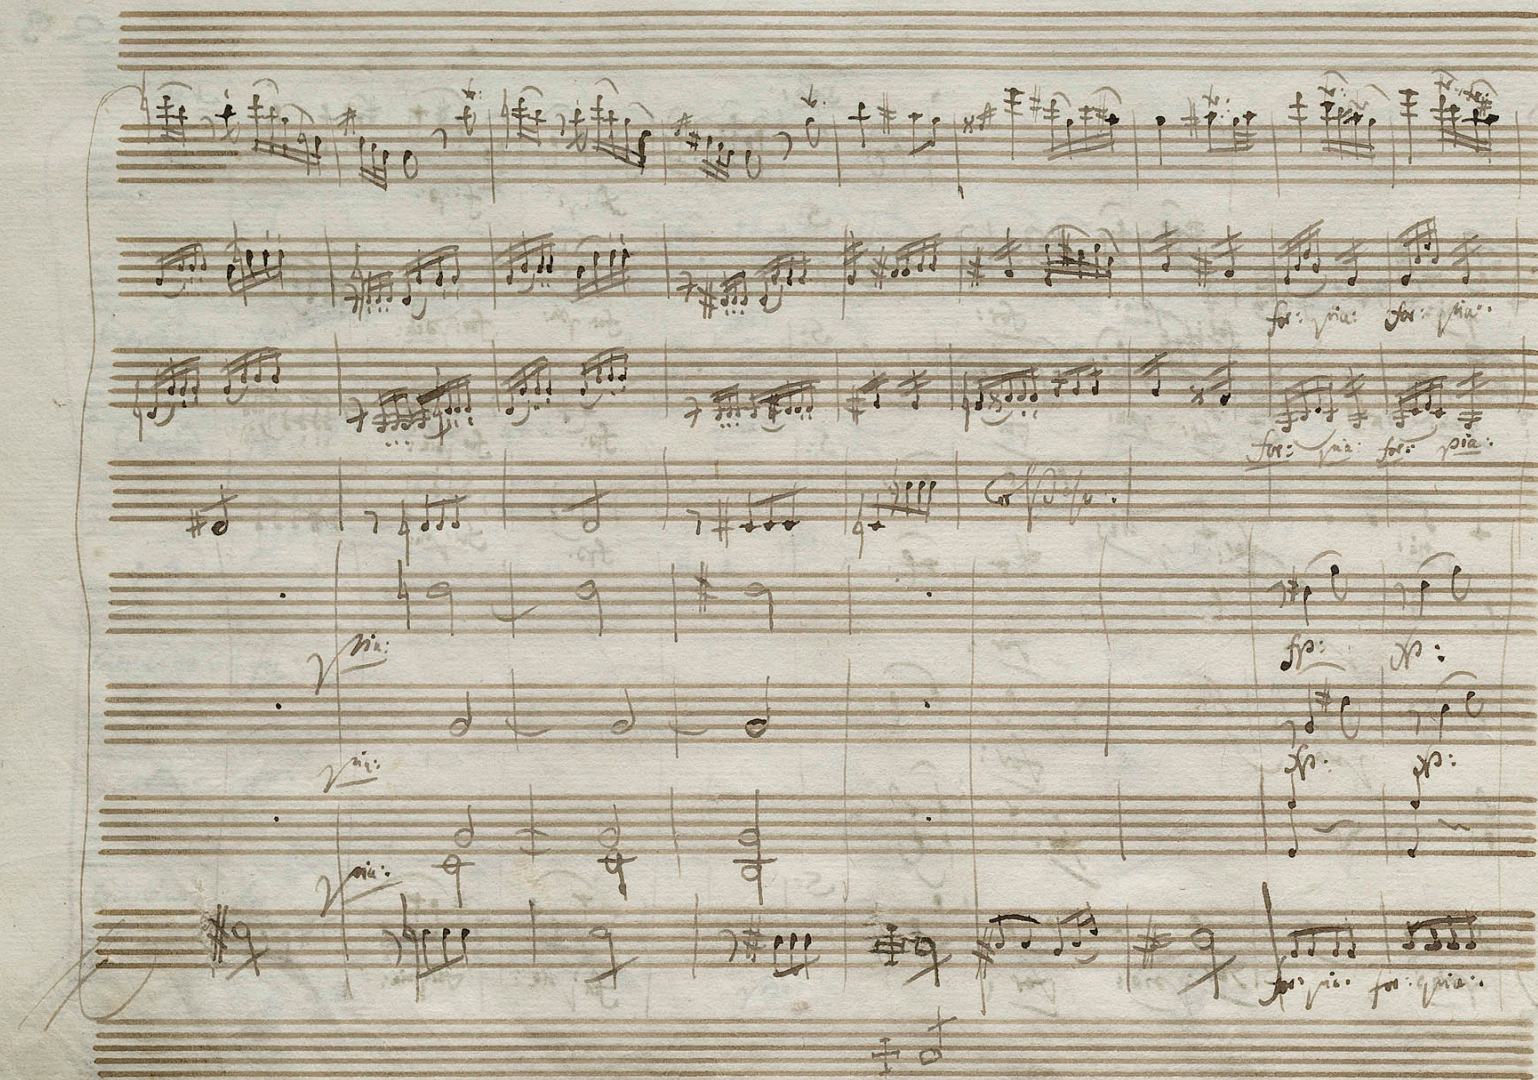 for: pia: for: pia:
for: pia: for: pia:
pia:
fp: fp:
pia:
fp: fp:
pia:
for: pia: for: pia: